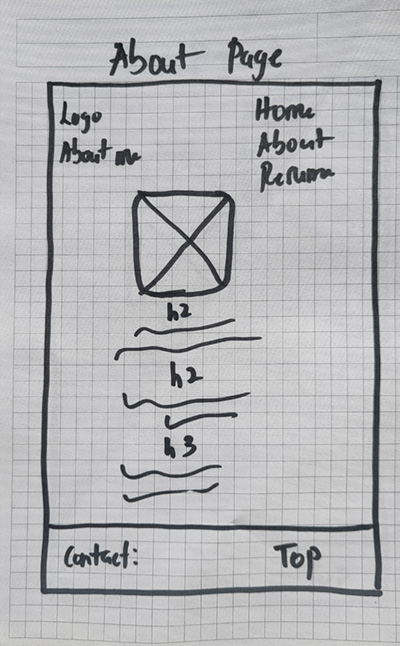 About Page
Logo
About me
Home
About
Resume
h2
h2
h3
Contact:
Top